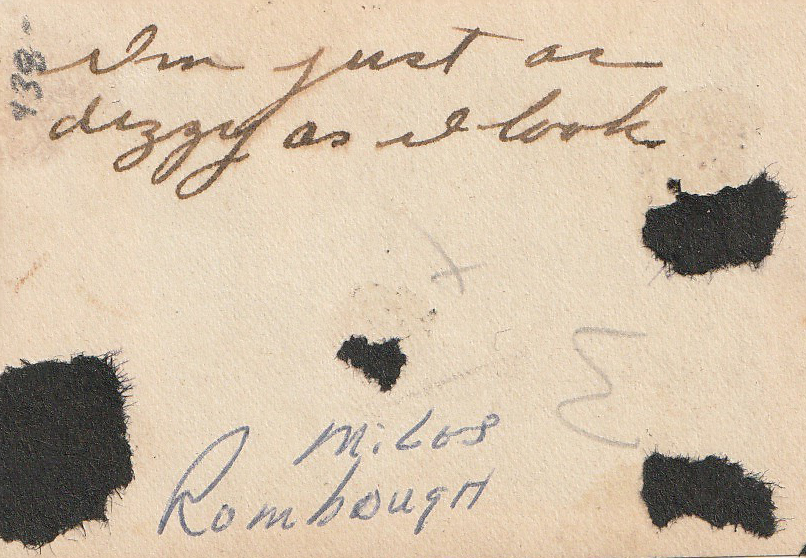 I'm just as
dizzy as I look
Milos
Rombough